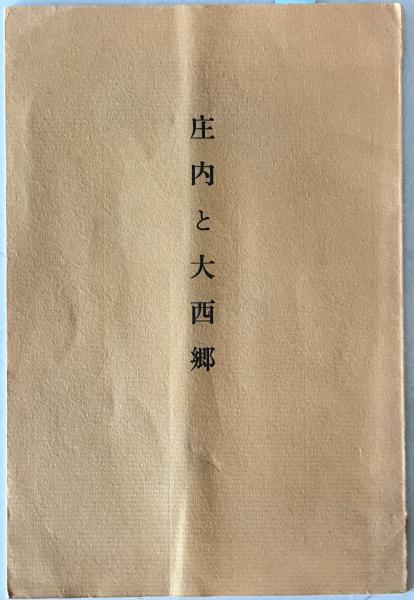 庄内と大西郷